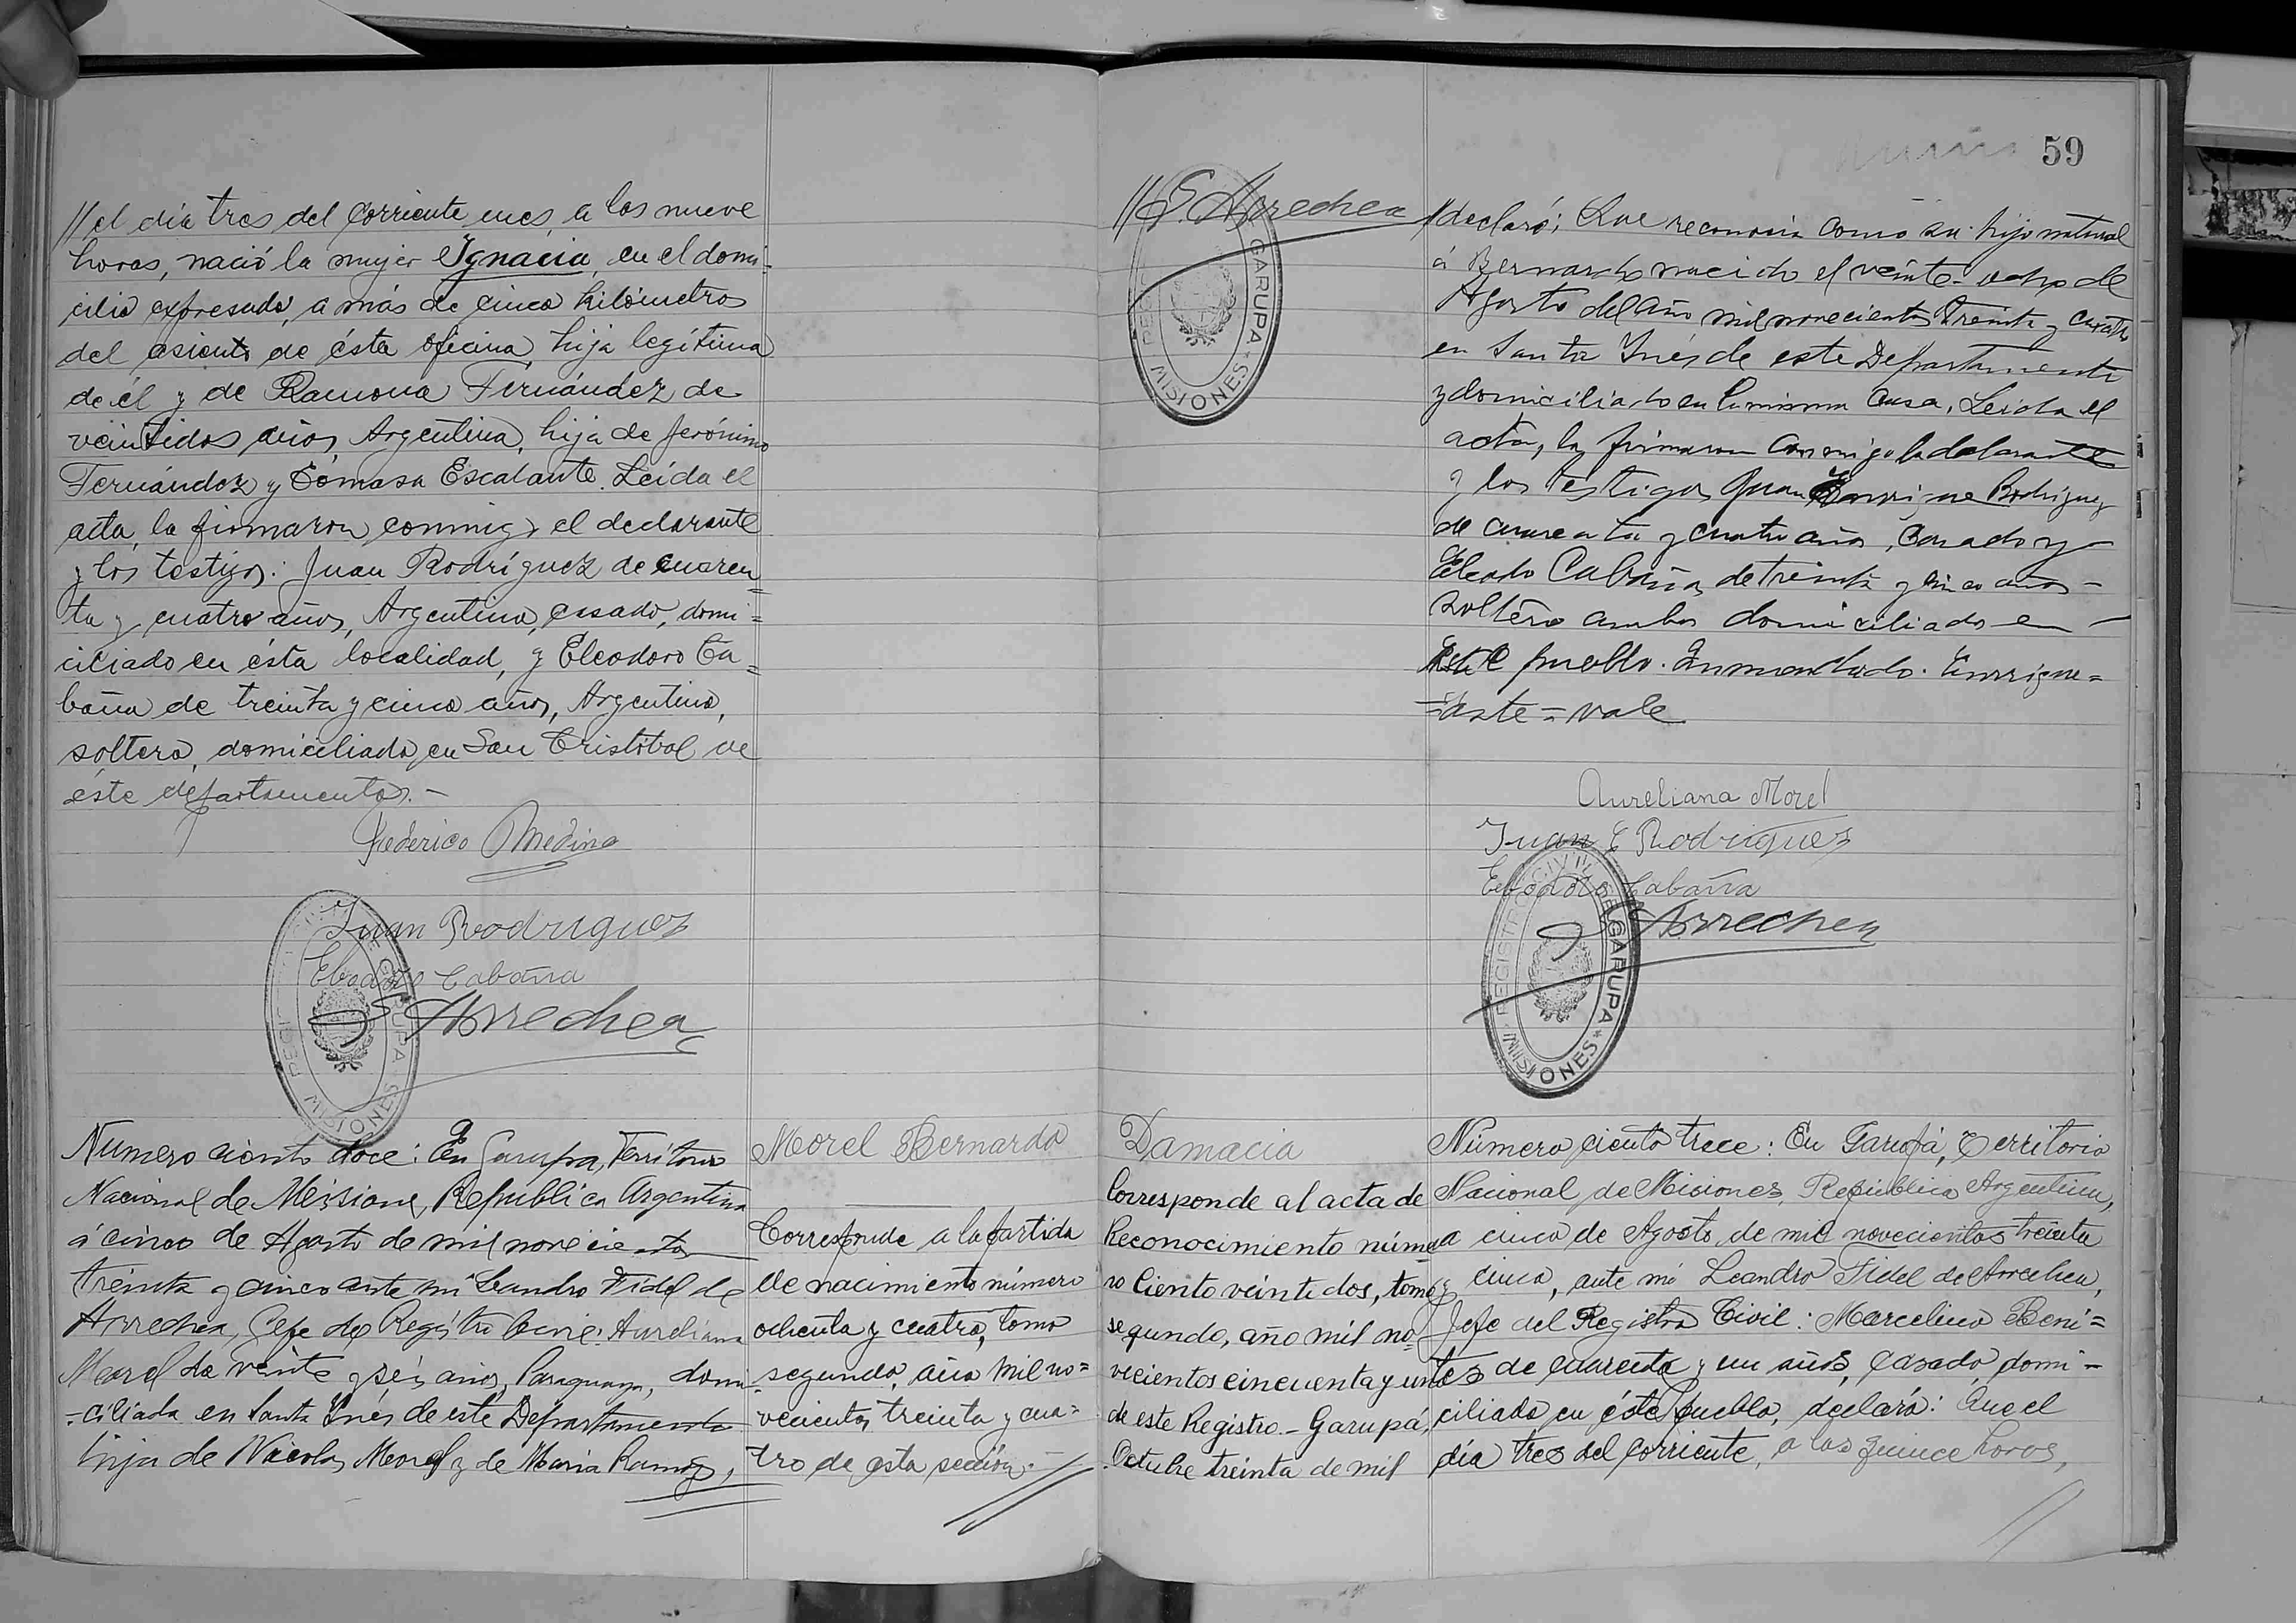 //el día tres del corriente mes, a las nueve
horas, nació la mujer Ignacia, en el domi-
cilio expresado, a más de cinco kilómetros
del asiento de ésta oficina, hija legítima
de él y de Ramona Fernández de
veintidos años, Argentina, hija de Jerónimo
Fernández y Tomasa Escalante. Leída el
acta, la firmaron conmigo el declarante
y los testigos: Juan Rodríguez de cuaren=
ta y cuatro años, Argentino, casado, domi=
ciliado en ésta localidad, y Eleodoro Ca=
baña de treinta y cinco años, Argentino,
soltero, domiciliado en San Cristóbal de
éste departamento.-
Federico Medina
Juan Rodriguez
Eleodoro Cabaña
Arrechea
GARUPA
MISIONES
Número ciento doce: En Garupa, Territorio
Nacional de Misiones, Republica Argentina
á cinco de Agosto de mil novecientos
treinta y cinco ante mi Leandro Fidel de
Arrechea, Gefe del Registro Civil: Aureliana
Morel de veinte y seis años, Paraguaya, domi-
-ciliada en Santa Inés de este Departamento
hija de Nicolas Morel y de Maria Ramos,
Morel Bernardo
Corresponde a la partida
de nacimiento número
ochenta y cuatro, tomo
segundo, año mil no=
vecientos treinta y cua=
tro de esta sección.-//
59
//Arrechea
GARUPA
MISIONES
//declaró; Que reconocia como su hijo natural
á Bernardo nacido el veinte-ocho de
Agosto del año mil novecientos treinta y cuatro
en Santa Inés de este Departamento
y domiciliado en la misma casa. Leida el
acta, la firmaron conmigo la declarante
y los testigos Juan Enrique Rodriguez
de cuarenta y cuatro años, Casado y-
Eleodoro Cabaña, de treinta y cinco años-
soltero ambos domiciliados en -
este pueblo. Enmendado. Enrique=
=este=vale
Aureliana Morel
Juan E Rodriguez
Eleodoro Cabaña
Arrechea
REGISTRO CIVIL DE GARUPA * MISIONES
Damacia
Corresponde al acta de
Reconocimiento núme
ro Ciento veinte dos, tomo
segundo, año mil no=
vecientos cincuenta y uno
de este Registro.- Garupá,
Octubre treinta de mil
Número ciento trece: En Garupá, Territorio
Nacional de Misiones, República Argentina,
a cinco de Agosto de mil novecientos treinta
y cinco, ante mí Leandro Fidel de Arrechea,
Jefe del Registro Civil: Marcelino Beni=
tes de cuarenta y un años, casado, domi-
ciliado en éste pueblo, declaró: Que el
día tres del corriente, a las quince horas,
//